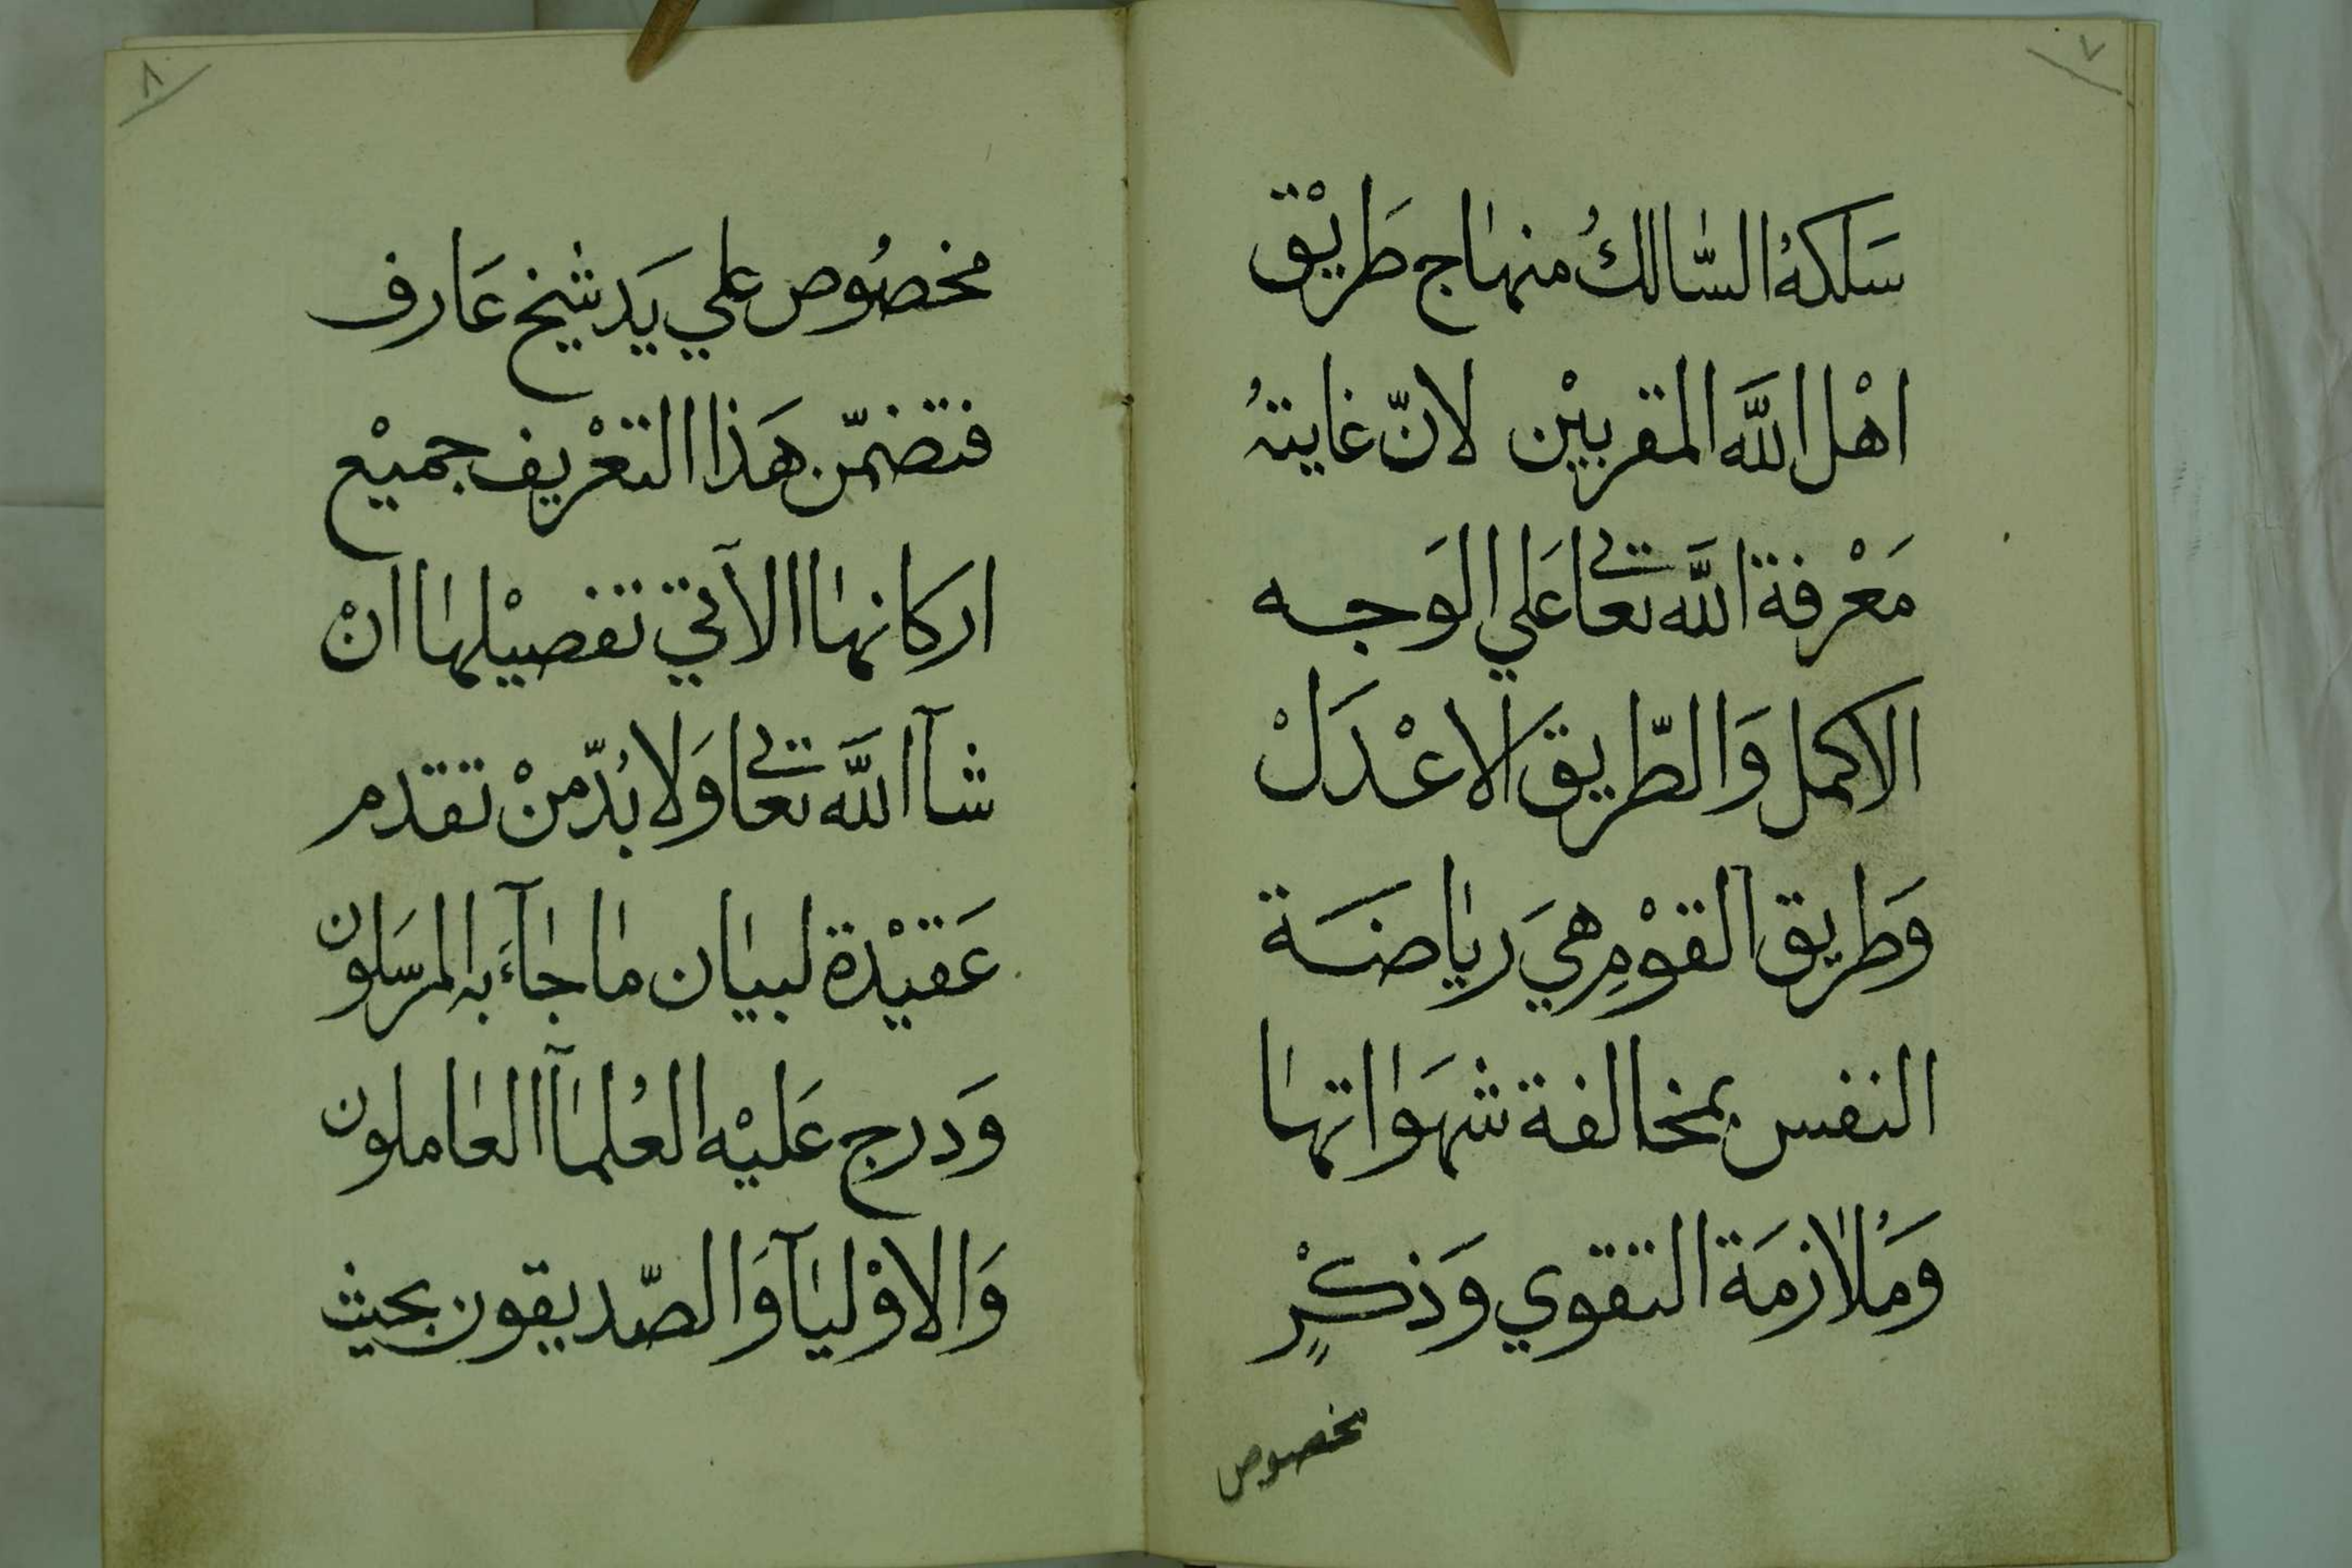 ٧
سَلكهُ السَّالكُ منهاج طَريْق
اهْل اللَّه المقربيْن لانّ غايتهُ
مَعْرفة اللَّه تعالي عَلي الوَجه
الاكمل وَالطّريق الاعْدَلْ
وَطريق القوْمِ هيَ رياضَة
النفس بمخالفة شهوَاتها
وَمُلازمَة التقوي وَذكْرٍ
مخصوص
٨
مخصُوص علي يَد شيخ عَارف
فتضمّن هَذا التعْريف جميْع
اركانها الآتي تفصيْلها انْ
شآ اللَّه تعالي وَلا بُدّ منْ تقدم
عَقيْدة لبيان ما جآءَ به المرسَلون
وَدرج عَليْه العُلمآ العاملون
وَالاوْليآ وَالصّديقون بحيث